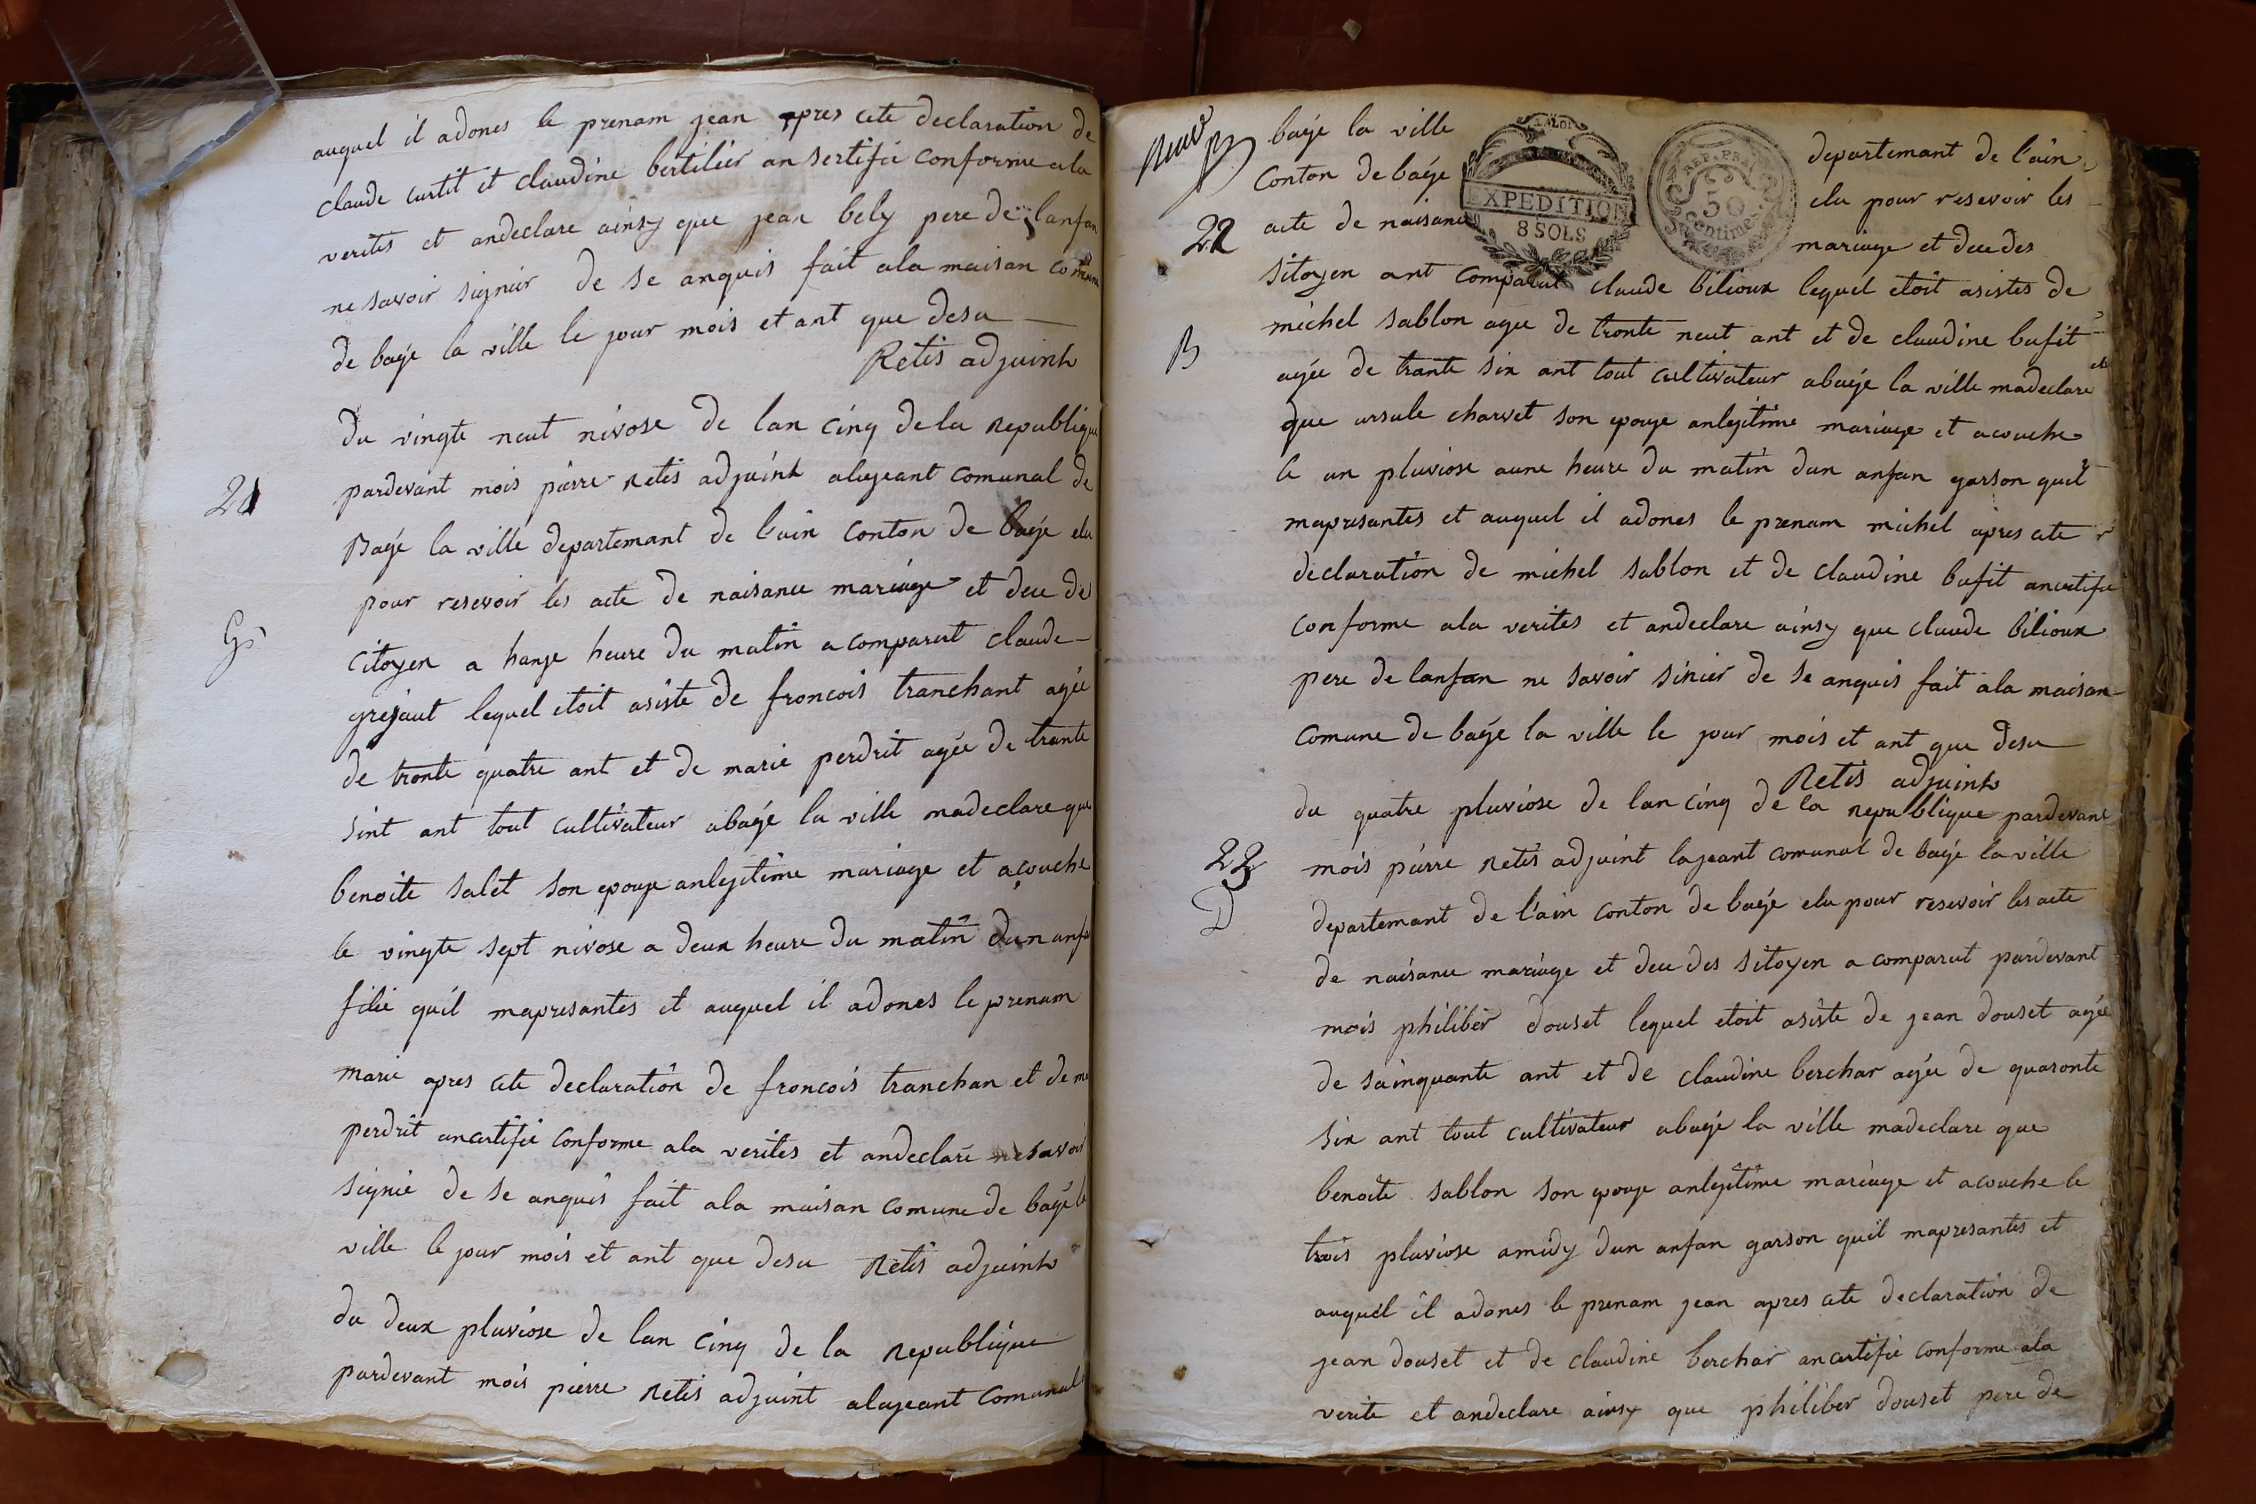 auquel il adones le prenam jean apres cete declaration de
claude curtit et claudine bertilier an sertifie conforme a la
verites et andeclare ainsy que jean bely pere de lanfan
ne savoir signier de se anquis fait ala maisan comune
de bagé la ville le jour mois et ant que desu
Retis adjuinh
Du vingte neut nivose de lan cinq de la Republique
21
pardevant mois pierre Retis adjuint alageant comunal de
Bagé la ville departemant de lain conton de bagé elu
pour resevoir les acte de naisance mariage et dece des
G
citoyen a hanze heure du matin a comparut claude
grejaut lequel etoit asiste de froncois tranchant agée
de tronte quatre ant et de marie perdrit agée de trante
sint ant tout cultivateur abagé la ville madeclare que
benoite salet son epouze anlegitime mariage et acouche
le vingte sept nivose a deux heure du matin dun anfa
filie quil mapresantes et auquel il adones le prenam
marie apres cete declaration de froncois tranchan et de m
perdrit ancertifie conforme ala verites et andeclare ne savoir
signié de se anquis fait ala maisan comune de bagé la
ville le jour mois et ant que desu Retis adjuinh
du deux pluviose de lan cinq de la Republique
pardevant mois pierre Retis adjuint alageant comunal
bagé la ville
departemant de lain
conton de bagé
elu pour resevoir les
22
acte de naisance
mariage et dece des
LA LOI
EXPEDITION
8 SOLS
REP. FRA.
50
Centimes
sitoyen ant comparut claude bilioux lequel etoit asistes de
michel sablon agee de tronte neut ant et de claudine bufit
B
agée de trante six ant tout cultivateur abagé la ville madeclare
que ursule charvet son epouze anlegitime mariage et acouche
le un pluviose aune heure du matin dun anfan garson quil
mapresantes et auquel il adones le prenam michel apres cete
declaration de michel sablon et de claudine bufit ancertifie
conforme ala verites et andeclare ainsy que claude bilioux
pere de lanfan ne savoir sinier de se anquis fait ala maisan
comune de bagé la ville le jour mois et ant que desu
Retis adjuinh
du quatre pluviose de lan cinq de la republique pardevant
23
mois pierre Retis adjuint lageant comunal de bagé la ville
D
departemant de lain conton de bagé elu pour resevoir les acte
de naisance mariage et dece des sitoyen a comparut pardevant
mois philiber douset lequel etoit asiste de jean douset agée
de sainquante ant et de claudine berchar agée de quaronte
six ant tout cultivateur abagé la ville madeclare que
benoite sablon son epouze anlegitime mariage et acouche le
trois pluviose amidy dun anfan garson quil mapresantes et
auquel il adones le prenam jean apres cete declaration de
jean douset et de claudine berchar ancertifie conforme ala
verite et andeclare ainsy que philiber douset pere de